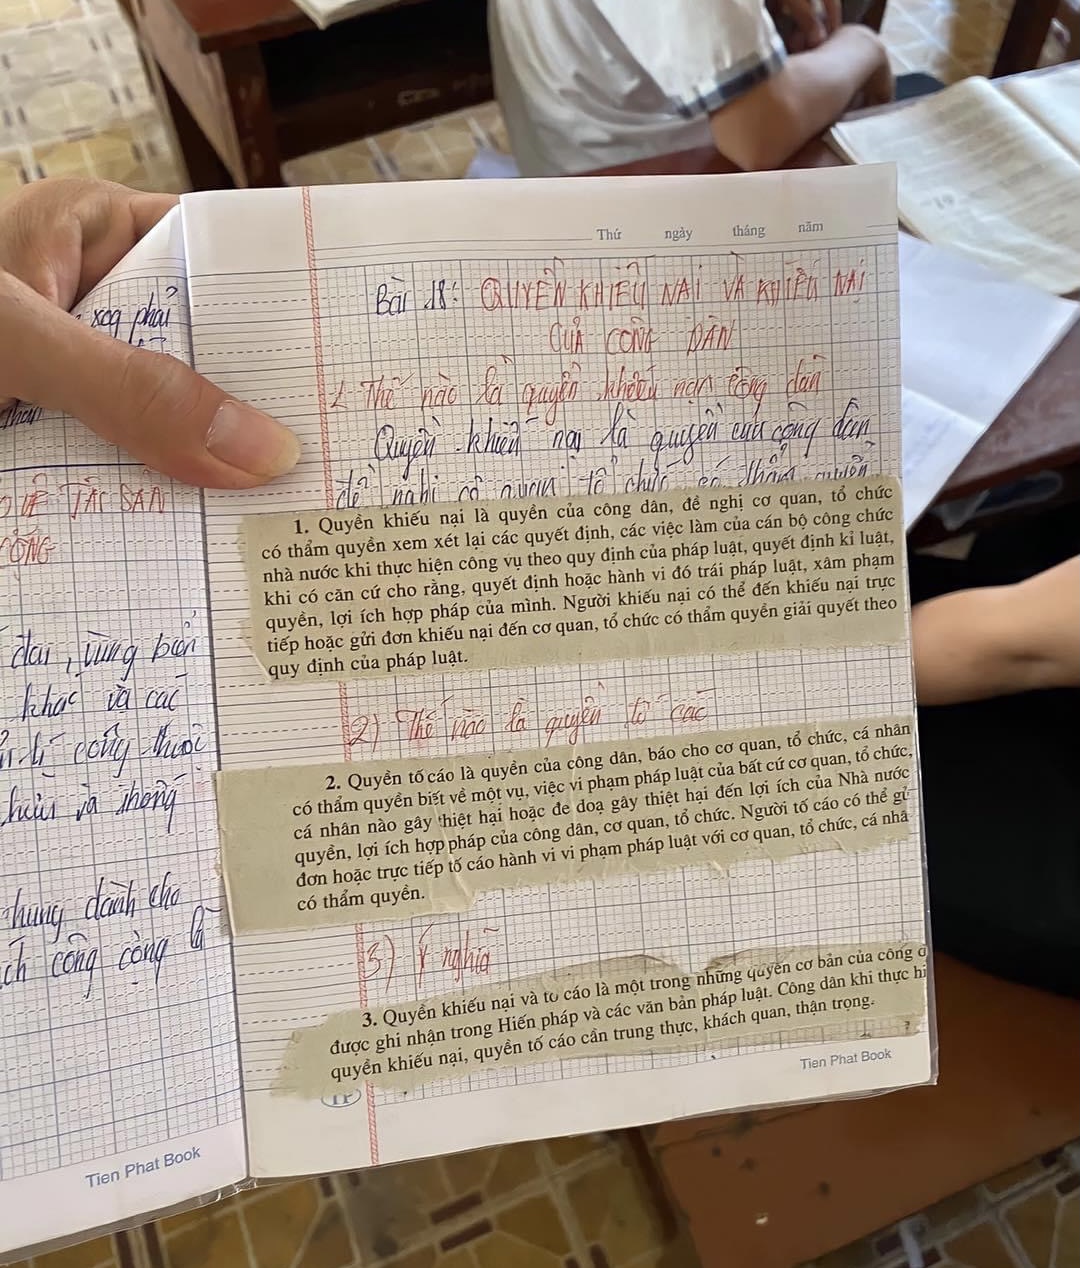 xog phải
VỀ TÀI SẢN
CỘNG
đai, vùng biển
khác và các
công thuộc
hữu và thống
chung dành cho
ích công cộng là
Tien Phat Book
Thứ ngày tháng năm
Bài 18: QUYỀN KHIẾU NẠI VÀ KHIẾU NẠI
CỦA CÔNG DÂN
1. Thế nào là quyền khiếu nại công dân
Quyền khiếu nại là quyền của công dân
để nghị cơ quan tổ chức có thẩm quyền
1. Quyền khiếu nại là quyền của công dân, đề nghị cơ quan, tổ chức
có thẩm quyền xem xét lại các quyết định, các việc làm của cán bộ công chức
nhà nước khi thực hiện công vụ theo quy định của pháp luật, quyết định kỉ luật,
khi có căn cứ cho rằng, quyết định hoặc hành vi đó trái pháp luật, xâm phạm
quyền, lợi ích hợp pháp của mình. Người khiếu nại có thể đến khiếu nại trực
tiếp hoặc gửi đơn khiếu nại đến cơ quan, tổ chức có thẩm quyền giải quyết theo
quy định của pháp luật.
2) Thế nào là quyền tố cáo
2. Quyền tố cáo là quyền của công dân, báo cho cơ quan, tổ chức, cá nhân
có thẩm quyền biết về một vụ, việc vi phạm pháp luật của bất cứ cơ quan, tổ chức,
cá nhân nào gây thiệt hại hoặc đe doạ gây thiệt hại đến lợi ích của Nhà nước
quyền, lợi ích hợp pháp của công dân, cơ quan, tổ chức. Người tố cáo có thể gử
đơn hoặc trực tiếp tố cáo hành vi vi phạm pháp luật với cơ quan, tổ chức, cá nhâ
có thẩm quyền.
3) Ý nghĩa
3. Quyền khiếu nại và tố cáo là một trong những quyền cơ bản của công d
được ghi nhận trong Hiến pháp và các văn bản pháp luật. Công dân khi thực hi
quyền khiếu nại, quyền tố cáo cần trung thực, khách quan, thận trọng.
Tien Phat Book